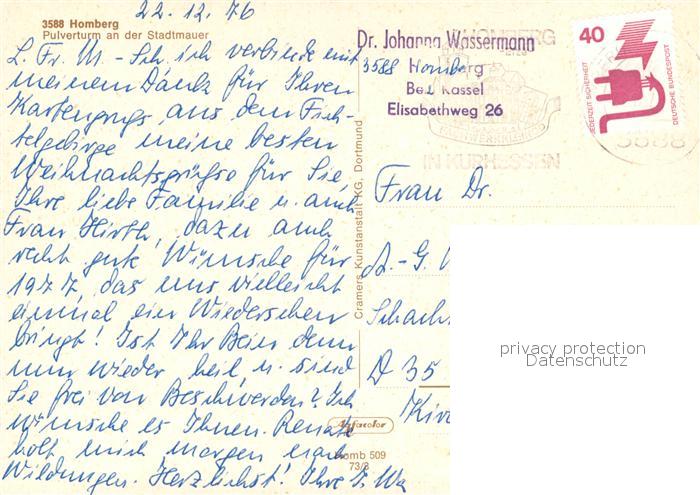 22.12.76
3588 Homberg
Pulverturm an der Stadtmauer
L. Fr. M. - Sch. ich verbinde mit
meinem Dank für Ihren
Kartengruß aus dem Fich-
telgebirge meine besten
Weihnachtsgrüße für Sie,
Ihre liebe Familie u. auch
Frau Hirth, dazu auch
recht gute Wünsche für
1977, das uns vielleicht
einmal ein Wiedersehen
bringt! Ist Ihr Bein denn
nun wieder heil u. sind
Sie frei von Beschwerden? Ich
wünsche es Ihnen. Renate
holt mich morgen nach
Wildungen. Herzlichst! Ihre J. Wa
Dr. Johanna Wassermann
3588 Homberg
Bez. Kassel
Elisabethweg 26
HOMBERG
FACHWERKSTADT
IN KURHESSEN
40
JEDERZEIT SICHERHEIT
DEUTSCHE BUNDESPOST
3588
Cramers Kunstanstalt KG, Dortmund
Frau Dr.
A.-G.
Schach
D 35
Kir
privacy protection
Datenschutz
Agfacolor
Homb 509
73/3